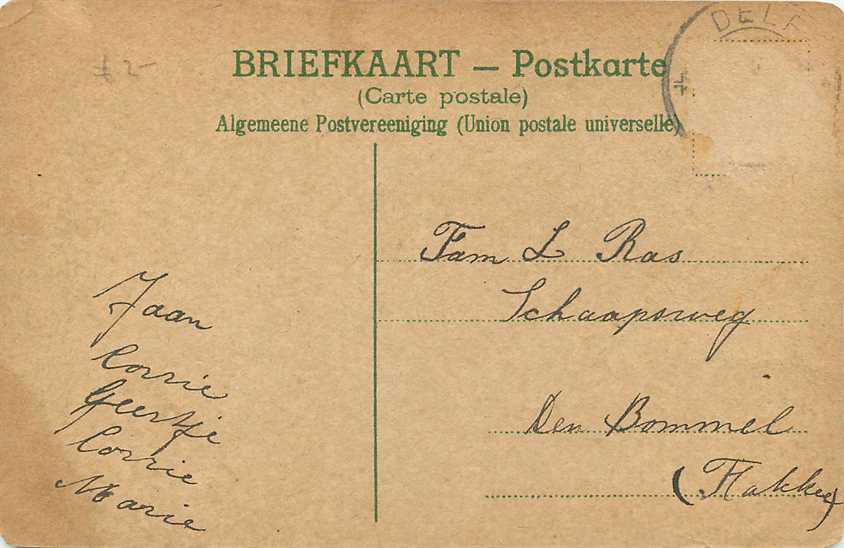 DELF
£ 2-
BRIEFKAART — Postkarte
(Carte postale)
Algemeene Postvereeniging (Union postale universelle)
Fam L Ras
Schaapsweg
Den Bommel
(Flakkee)
Jaan
Corrie
Geertje
Corrie
Marie